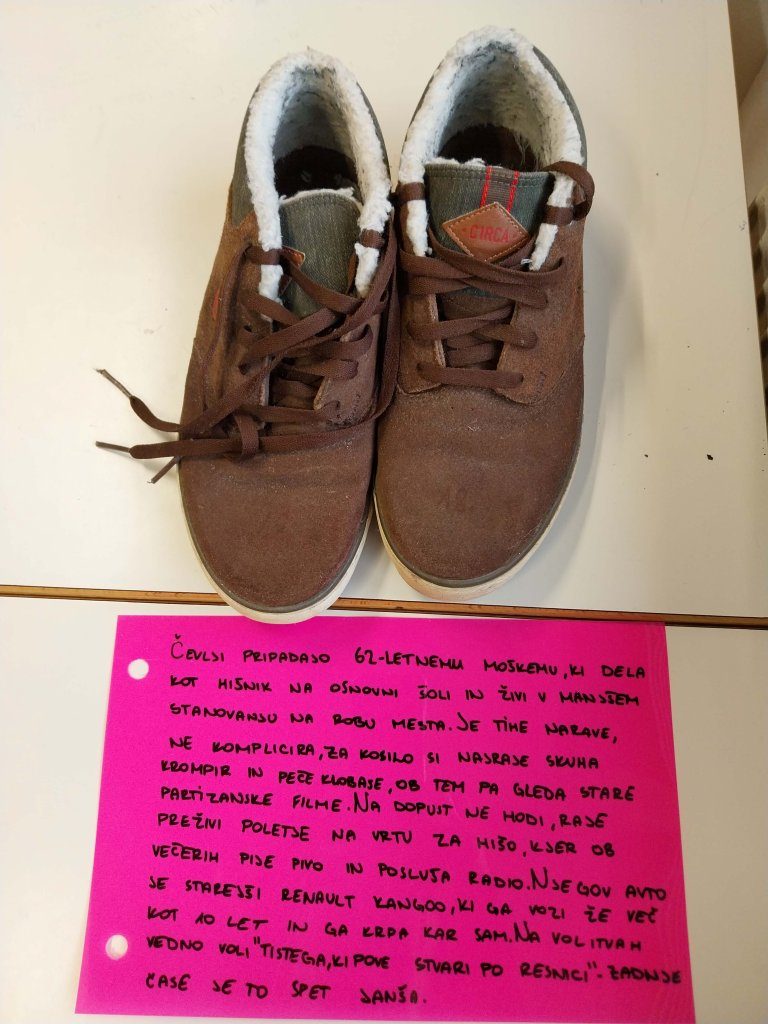 C1RCA
ČEVLJI PRIPADAJO 62-LETNEMU MOŠKEMU, KI DELA
KOT HIŠNIK NA OSNOVNI ŠOLI IN ŽIVI V MANJŠEM
STANOVANJU NA ROBU MESTA. JE TIHE NARAVE,
NE KOMPLICIRA, ZA KOSILO SI NAJRAJE SKUHA
KROMPIR IN PEČE KLOBASE, OB TEM PA GLEDA STARE
PARTIZANSKE FILME. NA DOPUST NE HODI, RAJE
PREŽIVI POLETJE NA VRTU ZA HIŠO, KJER OB
VEČERIH PIJE PIVO IN POSLUŠA RADIO. NJEGOV AVTO
JE STAREJŠI RENAULT KANGOO, KI GA VOZI ŽE VEČ
KOT 10 LET IN GA KRPA KAR SAM. NA VOLITVAH
VEDNO VOLI "TISTEGA, KI POVE STVARI PO RESNICI". ZADNJE
ČASE JE TO SPET JANŠA.